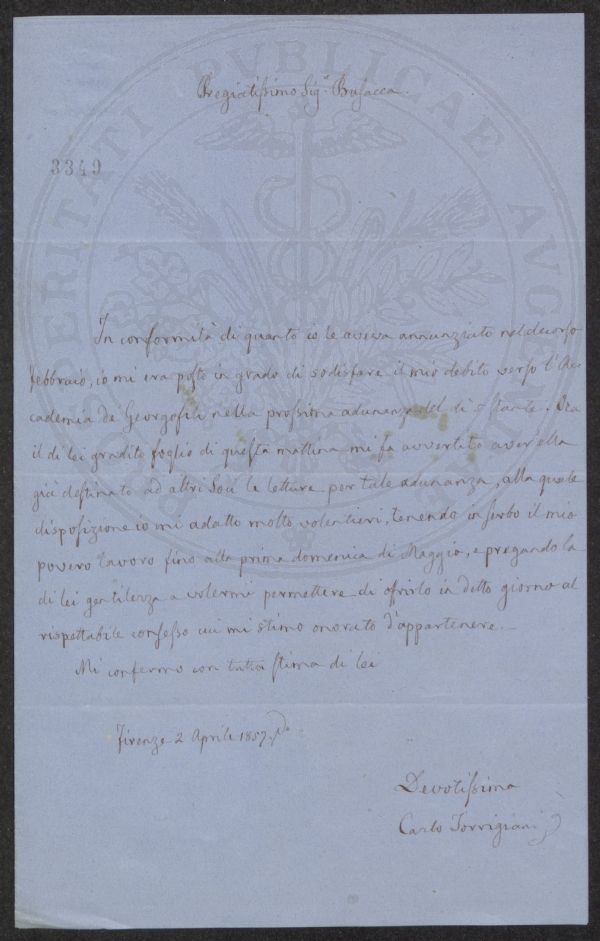 Pregiatissimo Sig.r Busacca.
3349
In conformità di quanto io le aveva annunziato nel decorso
febbraio, io mi era posto in grado di sodisfare il mio debito verso l'Ac-
cademia de Georgofili nella prossima adunanza del dì 5 stante. Ora
il di lei gradito foglio di questa mattina mi fa avvertito aver'ella
già destinato ad altri Soci le letture per tale adunanza, alla quale
disposizione io mi adatto molto volentieri, tenendo in serbo il mio
povero lavoro fino alla prima domenica di Maggio, e pregando la
di lei gentilezza a volermi permettere di offrirlo in detto giorno al
rispettabile consesso cui mi stimo onorato d'appartenere.
Mi confermo con tutta stima di lei
Firenze 2 Aprile 1857.
Devotissimo
Carlo Torrigiani
PROSPERITATI PVBLICAE AVGENDAE